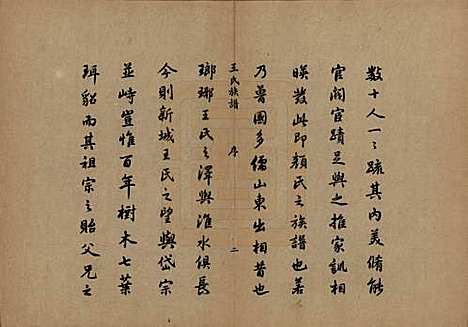 數十人一〻疏其内美脩能
官閥宦蹟足與之推家訓相
暎發此即顏氏之族譜也若
乃魯國多儒山東出相昔也
王氏族譜 序 二
瑯琊王氏之澤與淮水俱長
今則新城王氏之望與岱宗
並峙豈惟百年樹木七葉
珥貂而其祖宗之貽父兄之